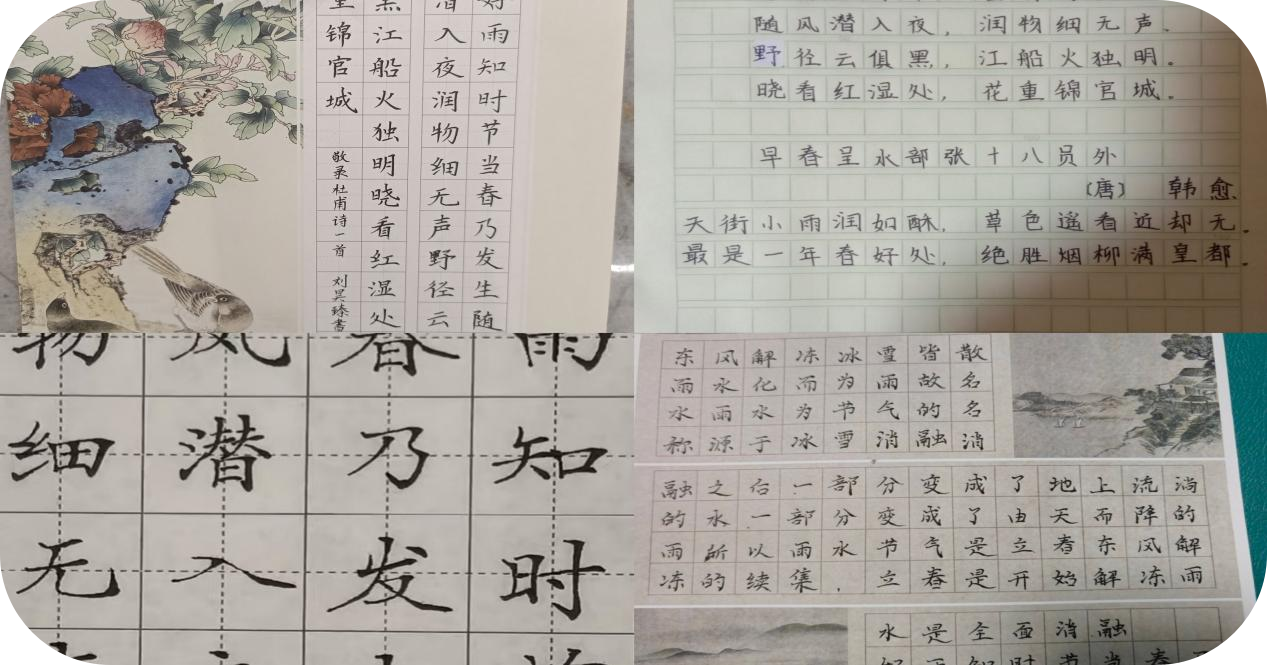 好雨知时节当春乃发生随
潜入夜润物细无声野径云
黑江船火独明晓看红湿处
重锦官城
敬录杜甫诗一首 刘昊臻书
随风潜入夜，润物细无声。
野径云俱黑，江船火独明。
晓看红湿处，花重锦官城。
早春呈水部张十八员外
〔唐〕 韩愈
天街小雨润如酥，草色遥看近却无。
最是一年春好处，绝胜烟柳满皇都。
雨知时
春乃发
风潜入
物细无
东风解冻冰雪皆散
雨水化而为雨故名
水雨水为节气的名
称源于冰雪消融消
融之后一部分变成了地上流淌
的水一部分变成了由天而降的
雨所以雨水节气是立春东风解
冻的续集，立春是开始解冻雨
水是全面消融
好雨知时节当春